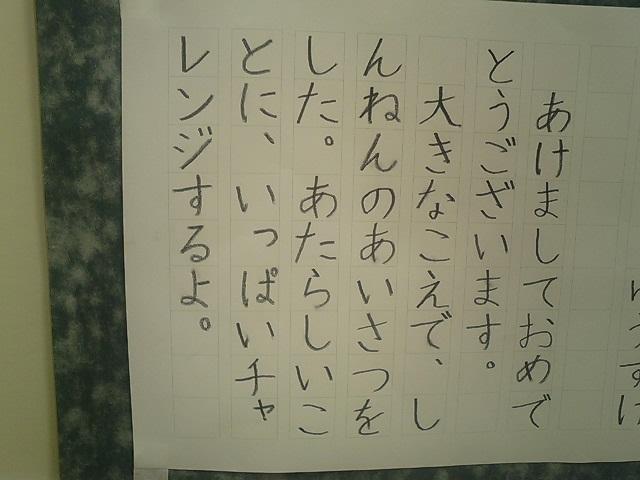 あけましておめで
とうございます。
大きなこえで、し
んねんのあいさつを
した。あたらしいこ
とに、いっぱいチャ
レンジするよ。